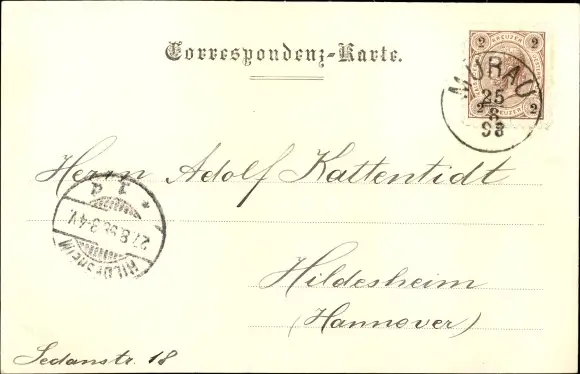 Correspondenz-Karte.
2 KREUZER 2
2 2
MURAU
25
8
98
Herrn Adolf Kattentidt
HILDESHEIM
27.8.98.3-4V.
Hildesheim
(Hannover)
Sedanstr. 18